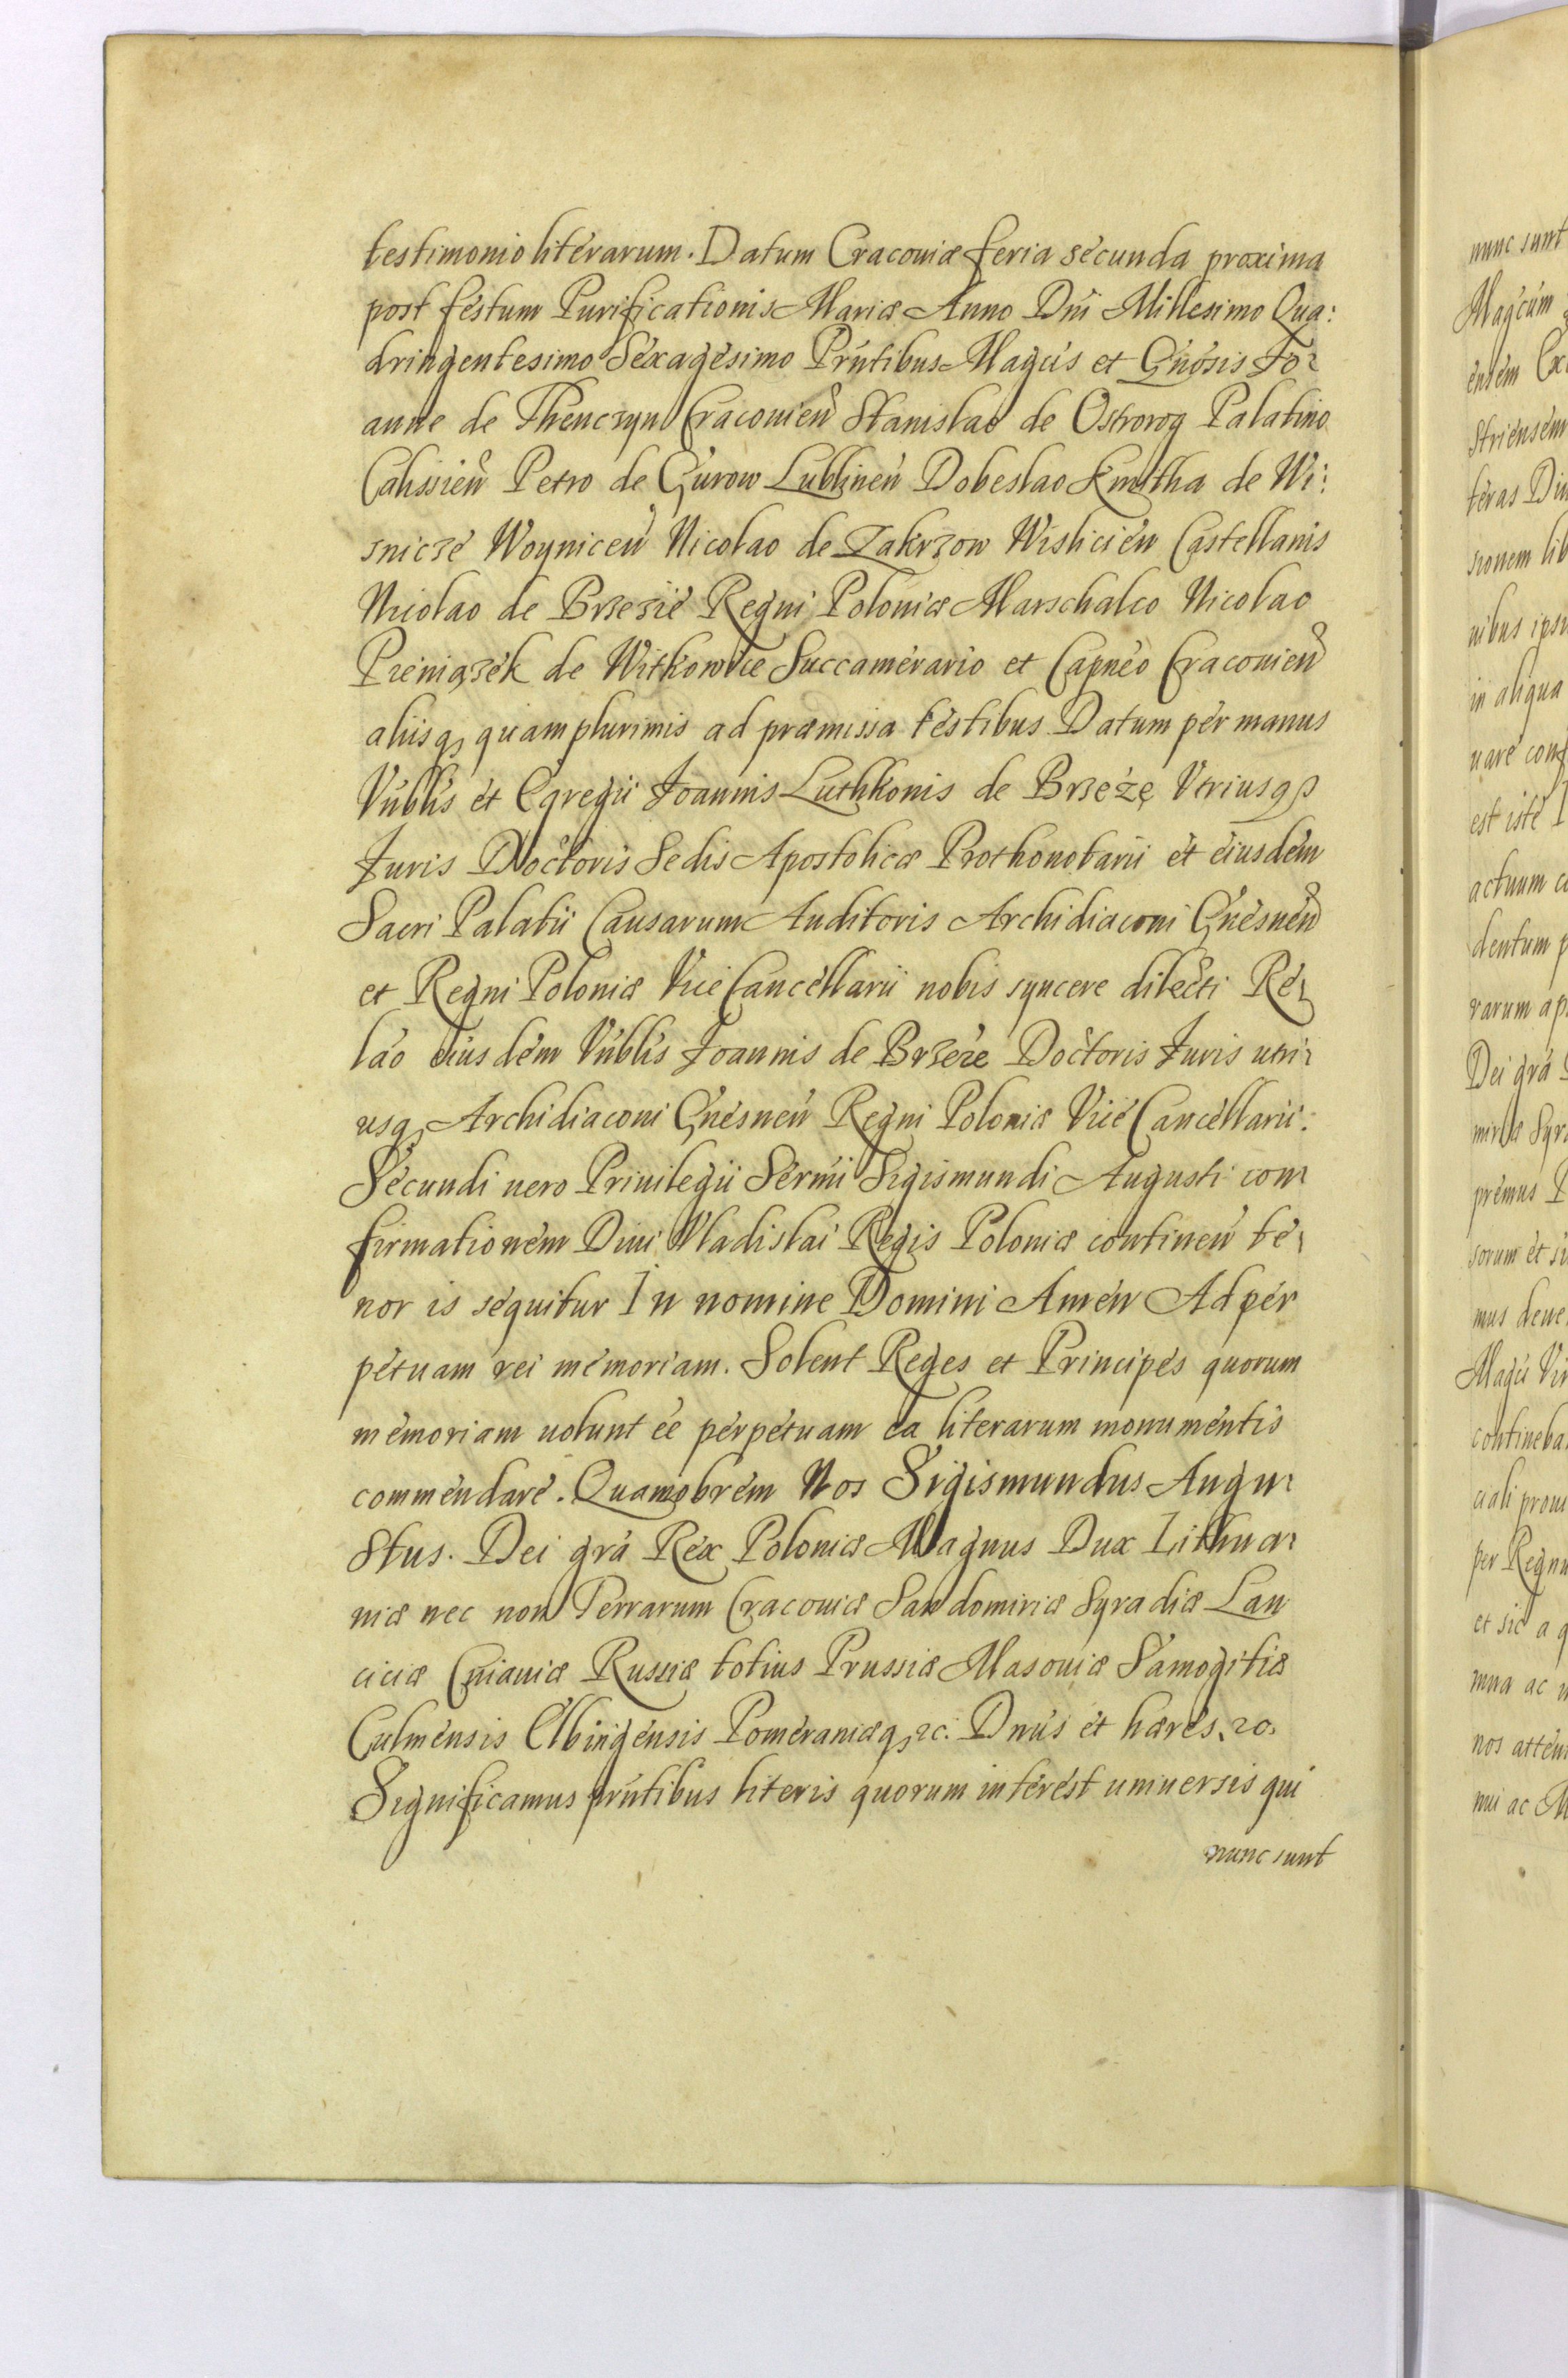 testimonio literarum. Datum Cracouiæ feria secunda proxima
post festum Purificationis Mariæ Anno Dni Millesimo Qua:
dringentesimo Sexagesimo Prntibus Magcis et Gnosis Jo-
anne de Thenczyn Cracouien Stanislao de Ostrorog Palatino
Calissien Petro de Gurow Lublinen Dobeslao Kmitha de Wi:
snicze Woynicen Nicolao de Zakrzow Wislicien Castellanis
Nicolao de Brzezie Regni Poloniæ Marschalco Nicolao
Pieniązek de Witkowice Succamerario et Capneo Cracouien
aliisq, quam plurimis ad præmissa testibus Datum per manus
Vnblis et Egregii Joannis Luthkonis de Brzezę Vtriusq,
Juris Doctoris Sedis Apostolicæ Prothonotarii et eiusdem
Sacri Palatii Causarum Auditoris Archidiaconi Gnesnen
et Regni Poloniæ Vice Cancellarii nobis syncere dilecti Re-
lao eiusdem Vnblis Joannis de Brzeze Doctoris Juris utri-
usq, Archidiaconi Gnesnen Regni Poloniæ Vice Cancellarii:
Secundi uero Priuilegii Sermi Sigismundi Augusti con-
firmationem Diui Vladislai Regis Poloniæ continen te-
nor is sequitur In nomine Domini Amen Ad per
petuam rei memoriam. Solent Reges et Principes quorum
memoriam uolunt ee perpetuam ea literarum monumentis
commendare. Quamobrem Nos Sigismundus Augu-
stus. Dei gra Rex Poloniæ Magnus Dux Lithua-
niæ nec non Terrarum Cracouiæ Sandomiriæ Syradiæ Lan
ciciæ Cuiauiæ Russiæ totius Prussiæ Masouiæ Samogitiæ
Culmensis Elbingensis Pomeraniæq, &c. Dnus et hæres &c.
Significamus prntibus literis quorum interest uniuersis qui
nunc sunt